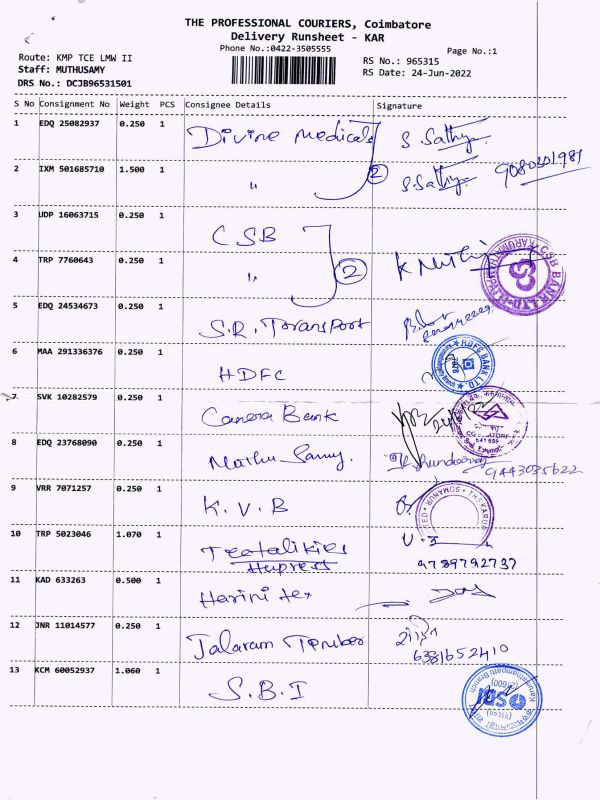 THE PROFESSIONAL COURIERS, Coimbatore
Delivery Runsheet - KAR
Phone No.:0422-3505555
Page No.:1
Route: KMP TCE LMW II
RS No.: 965315
Staff: MUTHUSAMY
RS Date: 24-Jun-2022
DRS No.: DCJB96531501
S No Consignment No Weight PCS Consignee Details Signature
1 EDQ 25082937 0.250 1 Divine Medicals S. Sathya
2 IXM 501685710 1.500 1 " 2 S. Sathya 9080301981
3 UDP 16063715 0.250 1 CSB
4 TRP 7760643 0.250 1 " 2 K
CSB BANK LTD
5 EDQ 24534673 0.250 1 S.R. Toransport
6 MAA 291336376 0.250 1 HDFC
HDFC BANK LTD.
7 SVK 10282579 0.250 1 Canera Bank
641 659
8 EDQ 23768090 0.250 1 Muthu Samy. 9443035622
9 VRR 7071257 0.250 1 K.V.B
SOMANUR
10 TRP 5023046 1.070 1 9789792737
11 KAD 633263 0.500 1 Harini tex
12 JNR 11014577 0.250 1 Jalaram Timber
6381652410
13 KCM 60052937 1.060 1 S.B.I
SBI